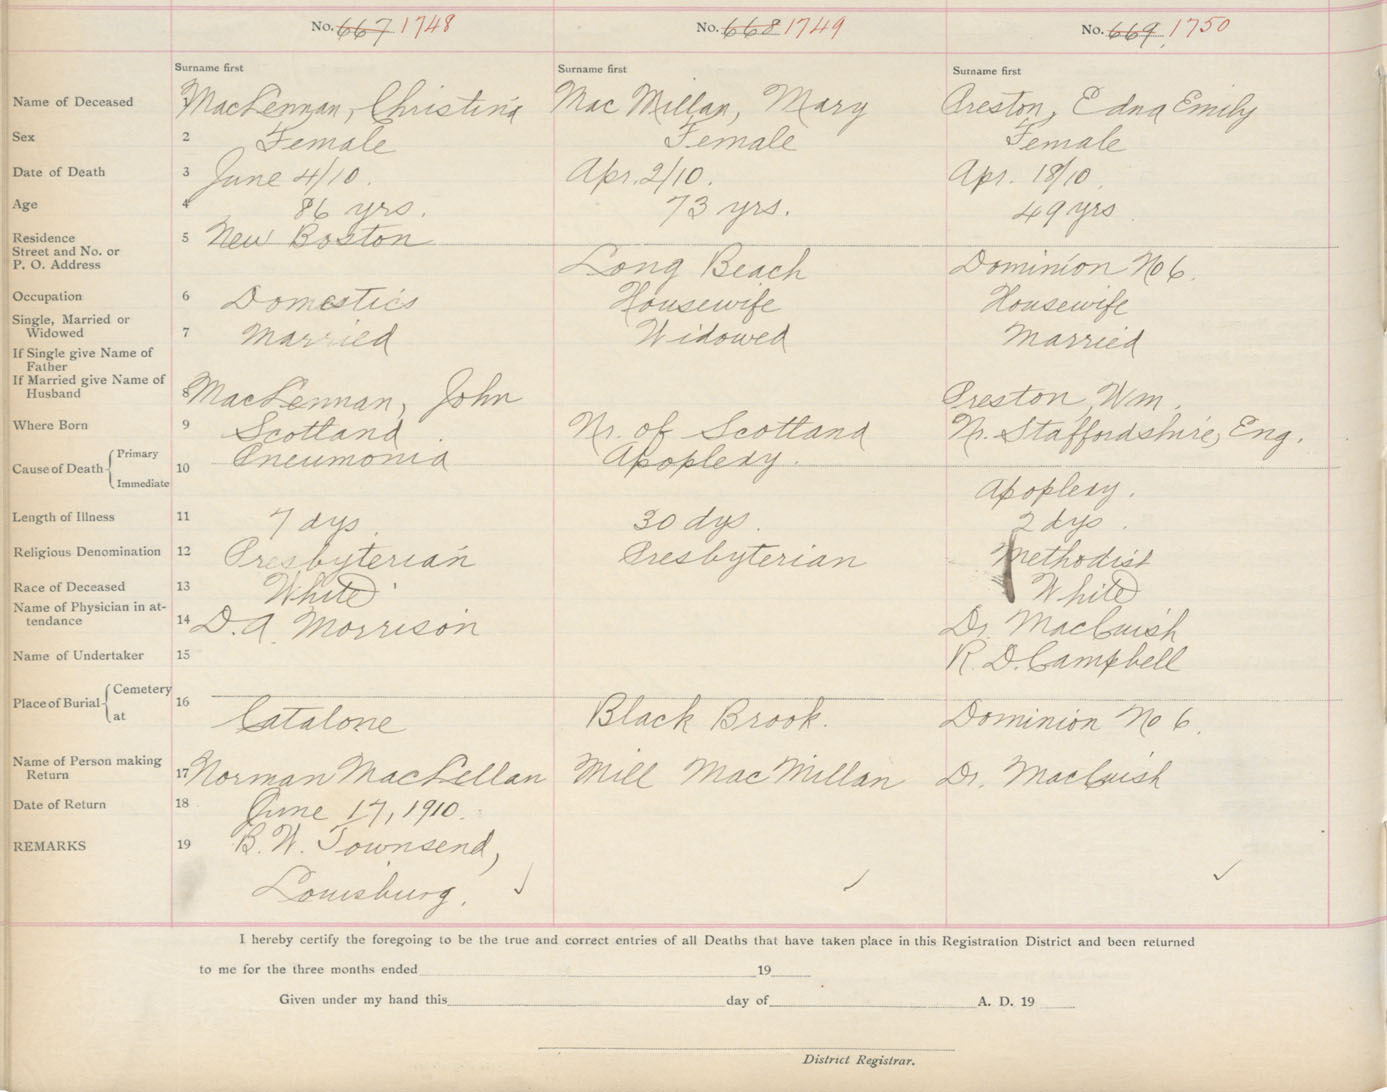 No. 667 1748 No. 668 1749 No. 669, 1750
Surname first Surname first Surname first
Name of Deceased 1 MacLennan, Christina Mac Millan, Mary Preston, Edna Emily
Sex 2 Female Female Female
Date of Death 3 June 4/10. Apr. 2/10. Apr. 18/10.
Age 4 86 yrs. 73 yrs. 49 yrs
Residence 5 New Boston
Street and No. or
P. O. Address Long Beach Dominion No 6.
Occupation 6 Domestics Housewife Housewife
Single, Married or
Widowed 7 Married Widowed Married
If Single give Name of
Father
If Married give Name of
Husband 8 MacLennan, John Preston, Wm.
Where Born 9 Scotland. Nr. of Scotland Nr. Staffordshire, Eng.
Cause of Death Primary 10 Pneumonia Apoplexy.
Immediate Apoplexy.
Length of Illness 11 7 dys. 30 dys. 2 dys.
Religious Denomination 12 Presbyterian Presbyterian Methodist
Race of Deceased 13 White White
Name of Physician in at-
tendance 14 D. A. Morrison Dr. MacCuish
Name of Undertaker 15 R. D. Campbell
Place of Burial Cemetery 16
at Catalone Black Brook. Dominion No 6.
Name of Person making
Return 17 Norman MacLellan Mill MacMillan Dr. MacCuish
Date of Return 18 June 17, 1910.
REMARKS 19 B. W. Townsend,
Louisburg. ✓ ✓ ✓
I hereby certify the foregoing to be the true and correct entries of all Deaths that have taken place in this Registration District and been returned
to me for the three months ended 19
Given under my hand this day of A. D. 19
District Registrar.